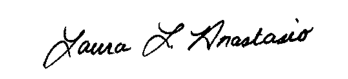 Laura L. Anastasio